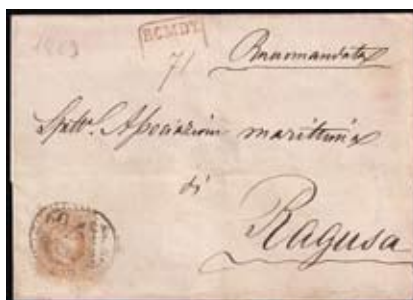 RCMDT.
1869
71
Raccomandata
Spett. Associazione marittima
di
Ragusa